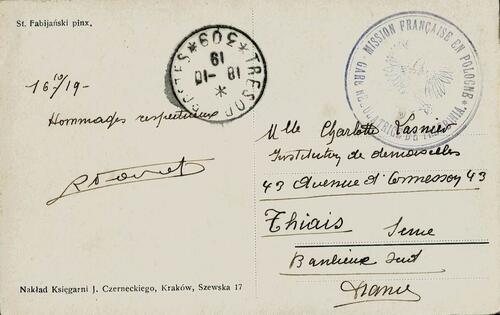 St. Fabijański pinx.
16 10/19-
Hommages respectueux
TRESOR ET POSTES * 309 *
18-10
19
MISSION FRANÇAISE EN POLOGNE
GARE
Mlle Charlotte Lasnier
Institution de demoiselles
43 Avenue d'Ormesson 43
Thiais Seine
Banlieue Sud
France
Nakład Księgarni J. Czerneckiego, Kraków, Szewska 17